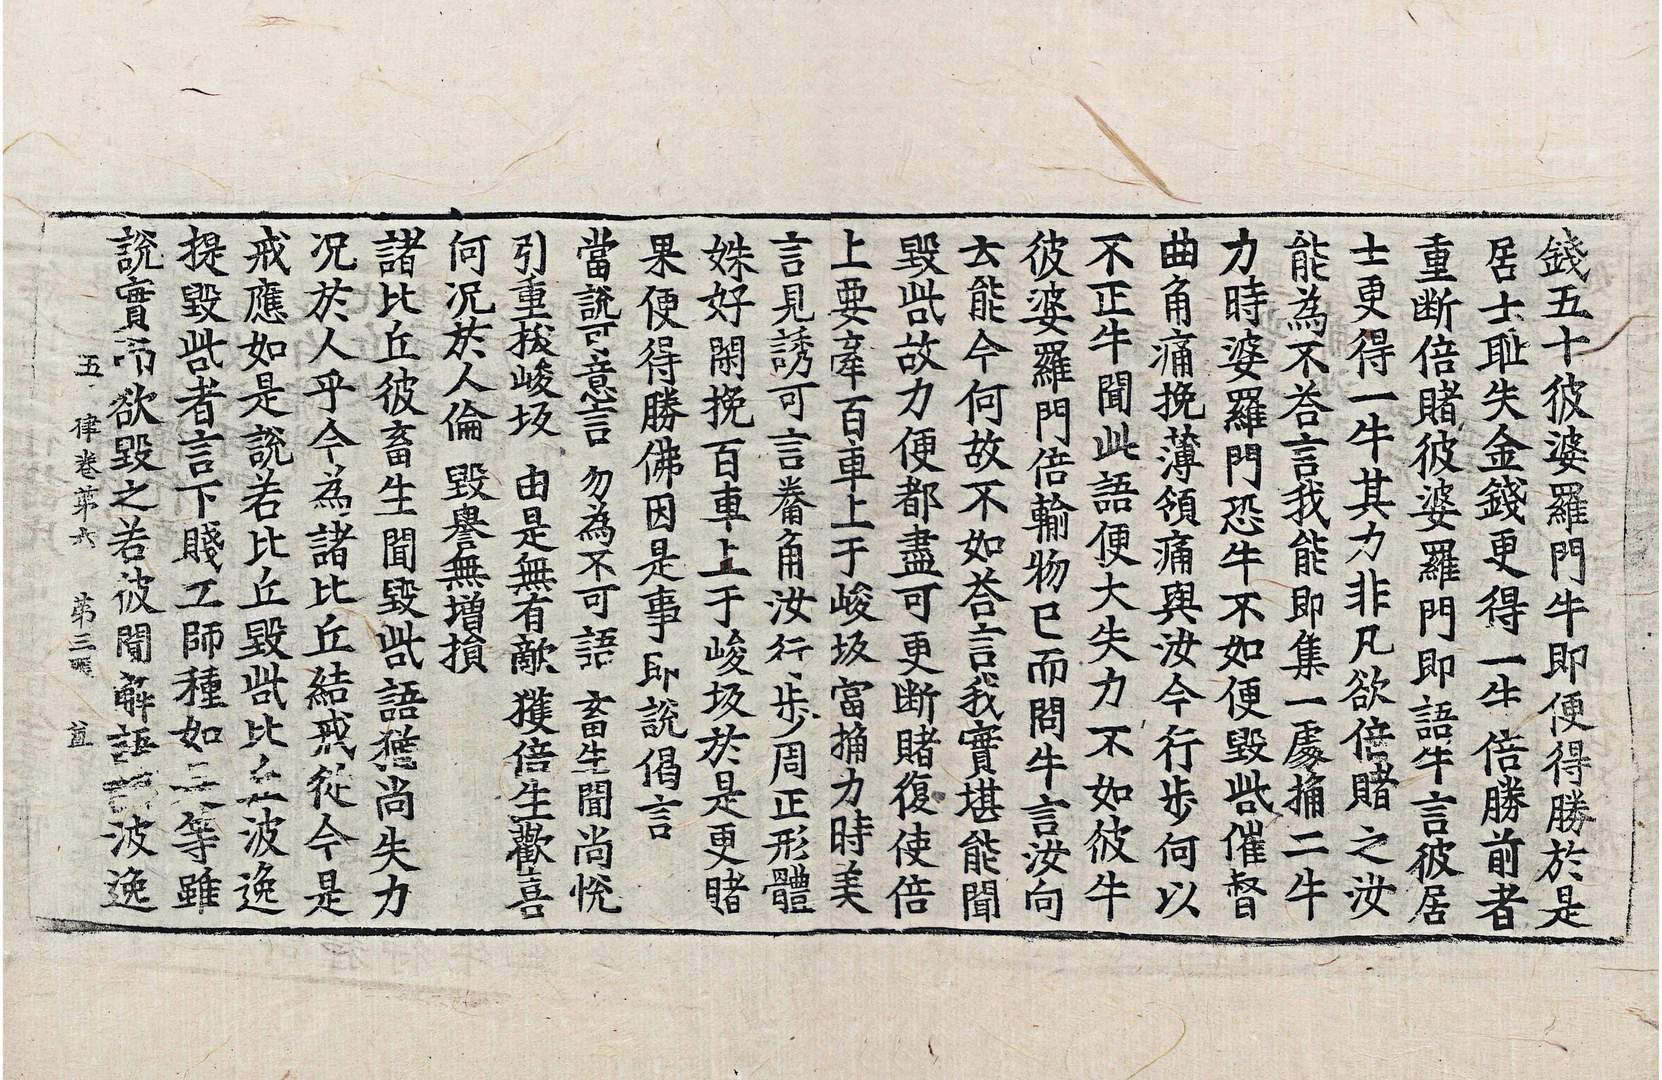 錢五十彼婆羅門牛即便得勝於是
居士耻失金錢更得一牛倍勝前者
重斷倍賭彼婆羅門即語牛言彼居
士更得一牛其力非凡欲倍賭之汝
能為不荅言我能即集一處捔二牛
力時婆羅門恐牛不如便毀呰催督
曲角痛挽薄領痛與汝今行步何以
不正牛聞此語便大失力不如彼牛
彼婆羅門倍輸物已而問牛言汝向
去能今何故不如荅言我實堪能聞
毀呰故力便都盡可更斷賭復使倍
上要牽百車上于峻坂當捔力時美
言見誘可言觠角汝行步周正形體
姝好閑挽百車上于峻坂於是更賭
果便得勝佛因是事即說偈言
當說可意言 勿為不可語 畜生聞尚悅
引重拔峻坂 由是無有敵 獲倍生歡喜
何況於人倫 毀譽無增損
諸比丘彼畜生聞毀呰語猶尚失力
況於人乎今為諸比丘結戒從今是
戒應如是說若比丘毀呰比丘波逸
提毀呰者言下賤工師種如是等雖
說實而欲毀之若彼聞解語語波逸
五 律卷第六 第三張 益